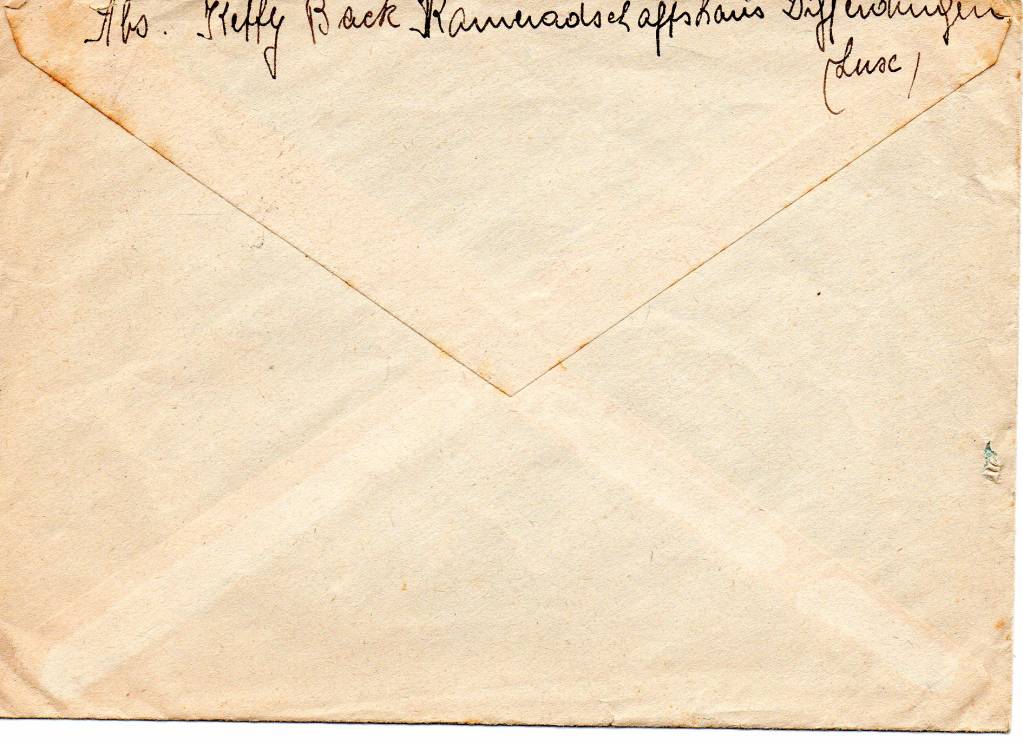 Abs. Keffy Back Kameradschaffshaus Differdingen
(Luxe)